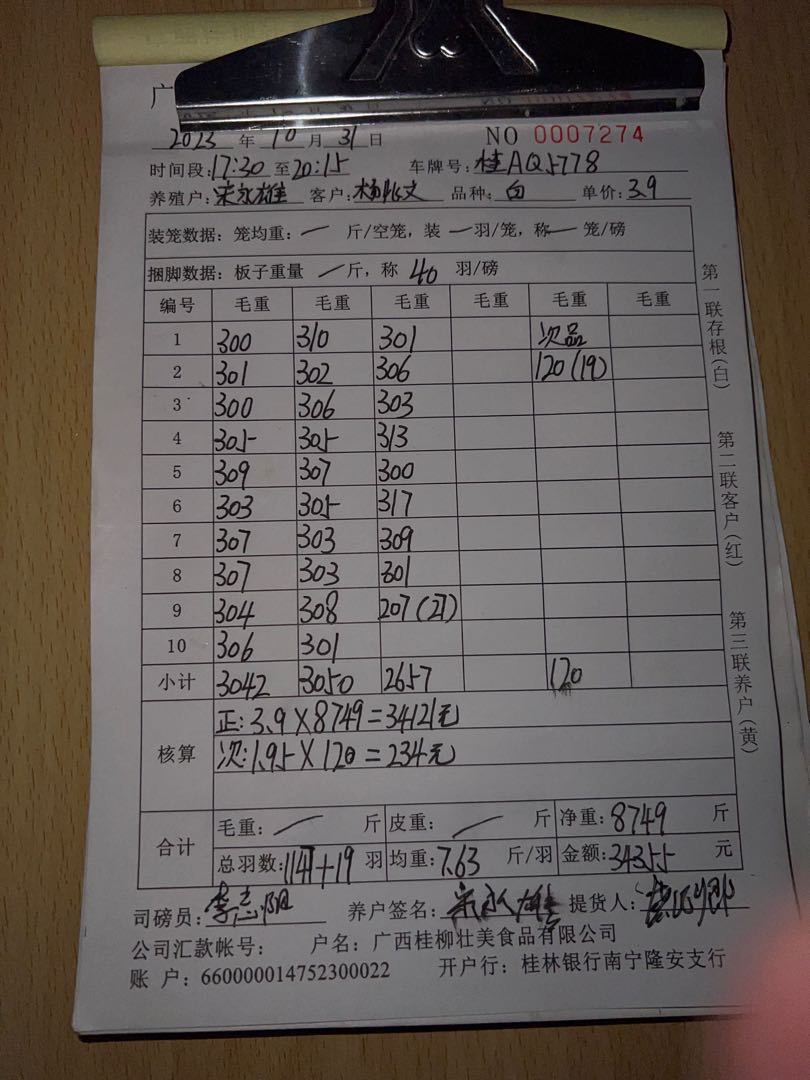 广
2023 年 10 月 31 日 NO 0007274
时间段:17:30 至 20:15 车牌号:桂AQ5778
养殖户:宋永雄 客户:杨兆文 品种:白 单价:3.9
装笼数据:笼均重:一 斤/空笼,装 一 羽/笼,称 一 笼/磅
捆脚数据:板子重量 一 斤,称 40 羽/磅
编号 毛重 毛重 毛重 毛重 毛重 毛重
1 300 310 301 次品
2 301 302 306 120(19)
3 300 306 303
4 305 305 313
5 309 307 300
6 303 305 317
7 307 303 309
8 307 303 301
9 304 308 207(27)
10 306 301
小计 3042 3050 2657 120
核算
正:3.9×8749=34121元
次:1.95×120=234元
合计
毛重:一 斤 皮重:一 斤 净重:8749 斤
总羽数:1147+19 羽 均重:7.63 斤/羽 金额:34355 元
司磅员:李志阳 养户签名:宋永雄 提货人:
公司汇款帐号: 户名:广西桂柳壮美食品有限公司
账 户:660000014752300022 开户行:桂林银行南宁隆安支行
第一联存根(白)
第二联客户(红)
第三联养户(黄)